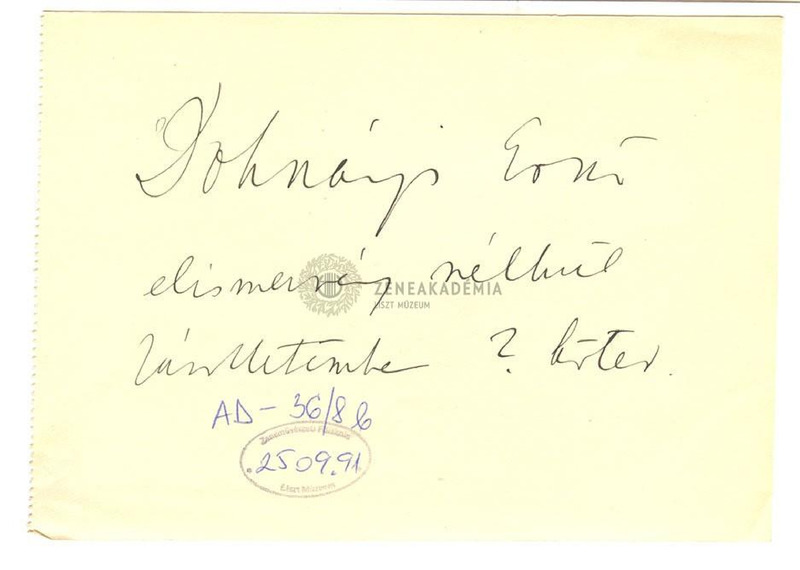 Dohnányi Ernő
elismervény nélkül
ZENEAKADÉMIA
LISZT MÚZEUM
2 kötet.
AD-36/8b
Zeneművészeti Főiskola
25 09.91
Liszt Múzeum